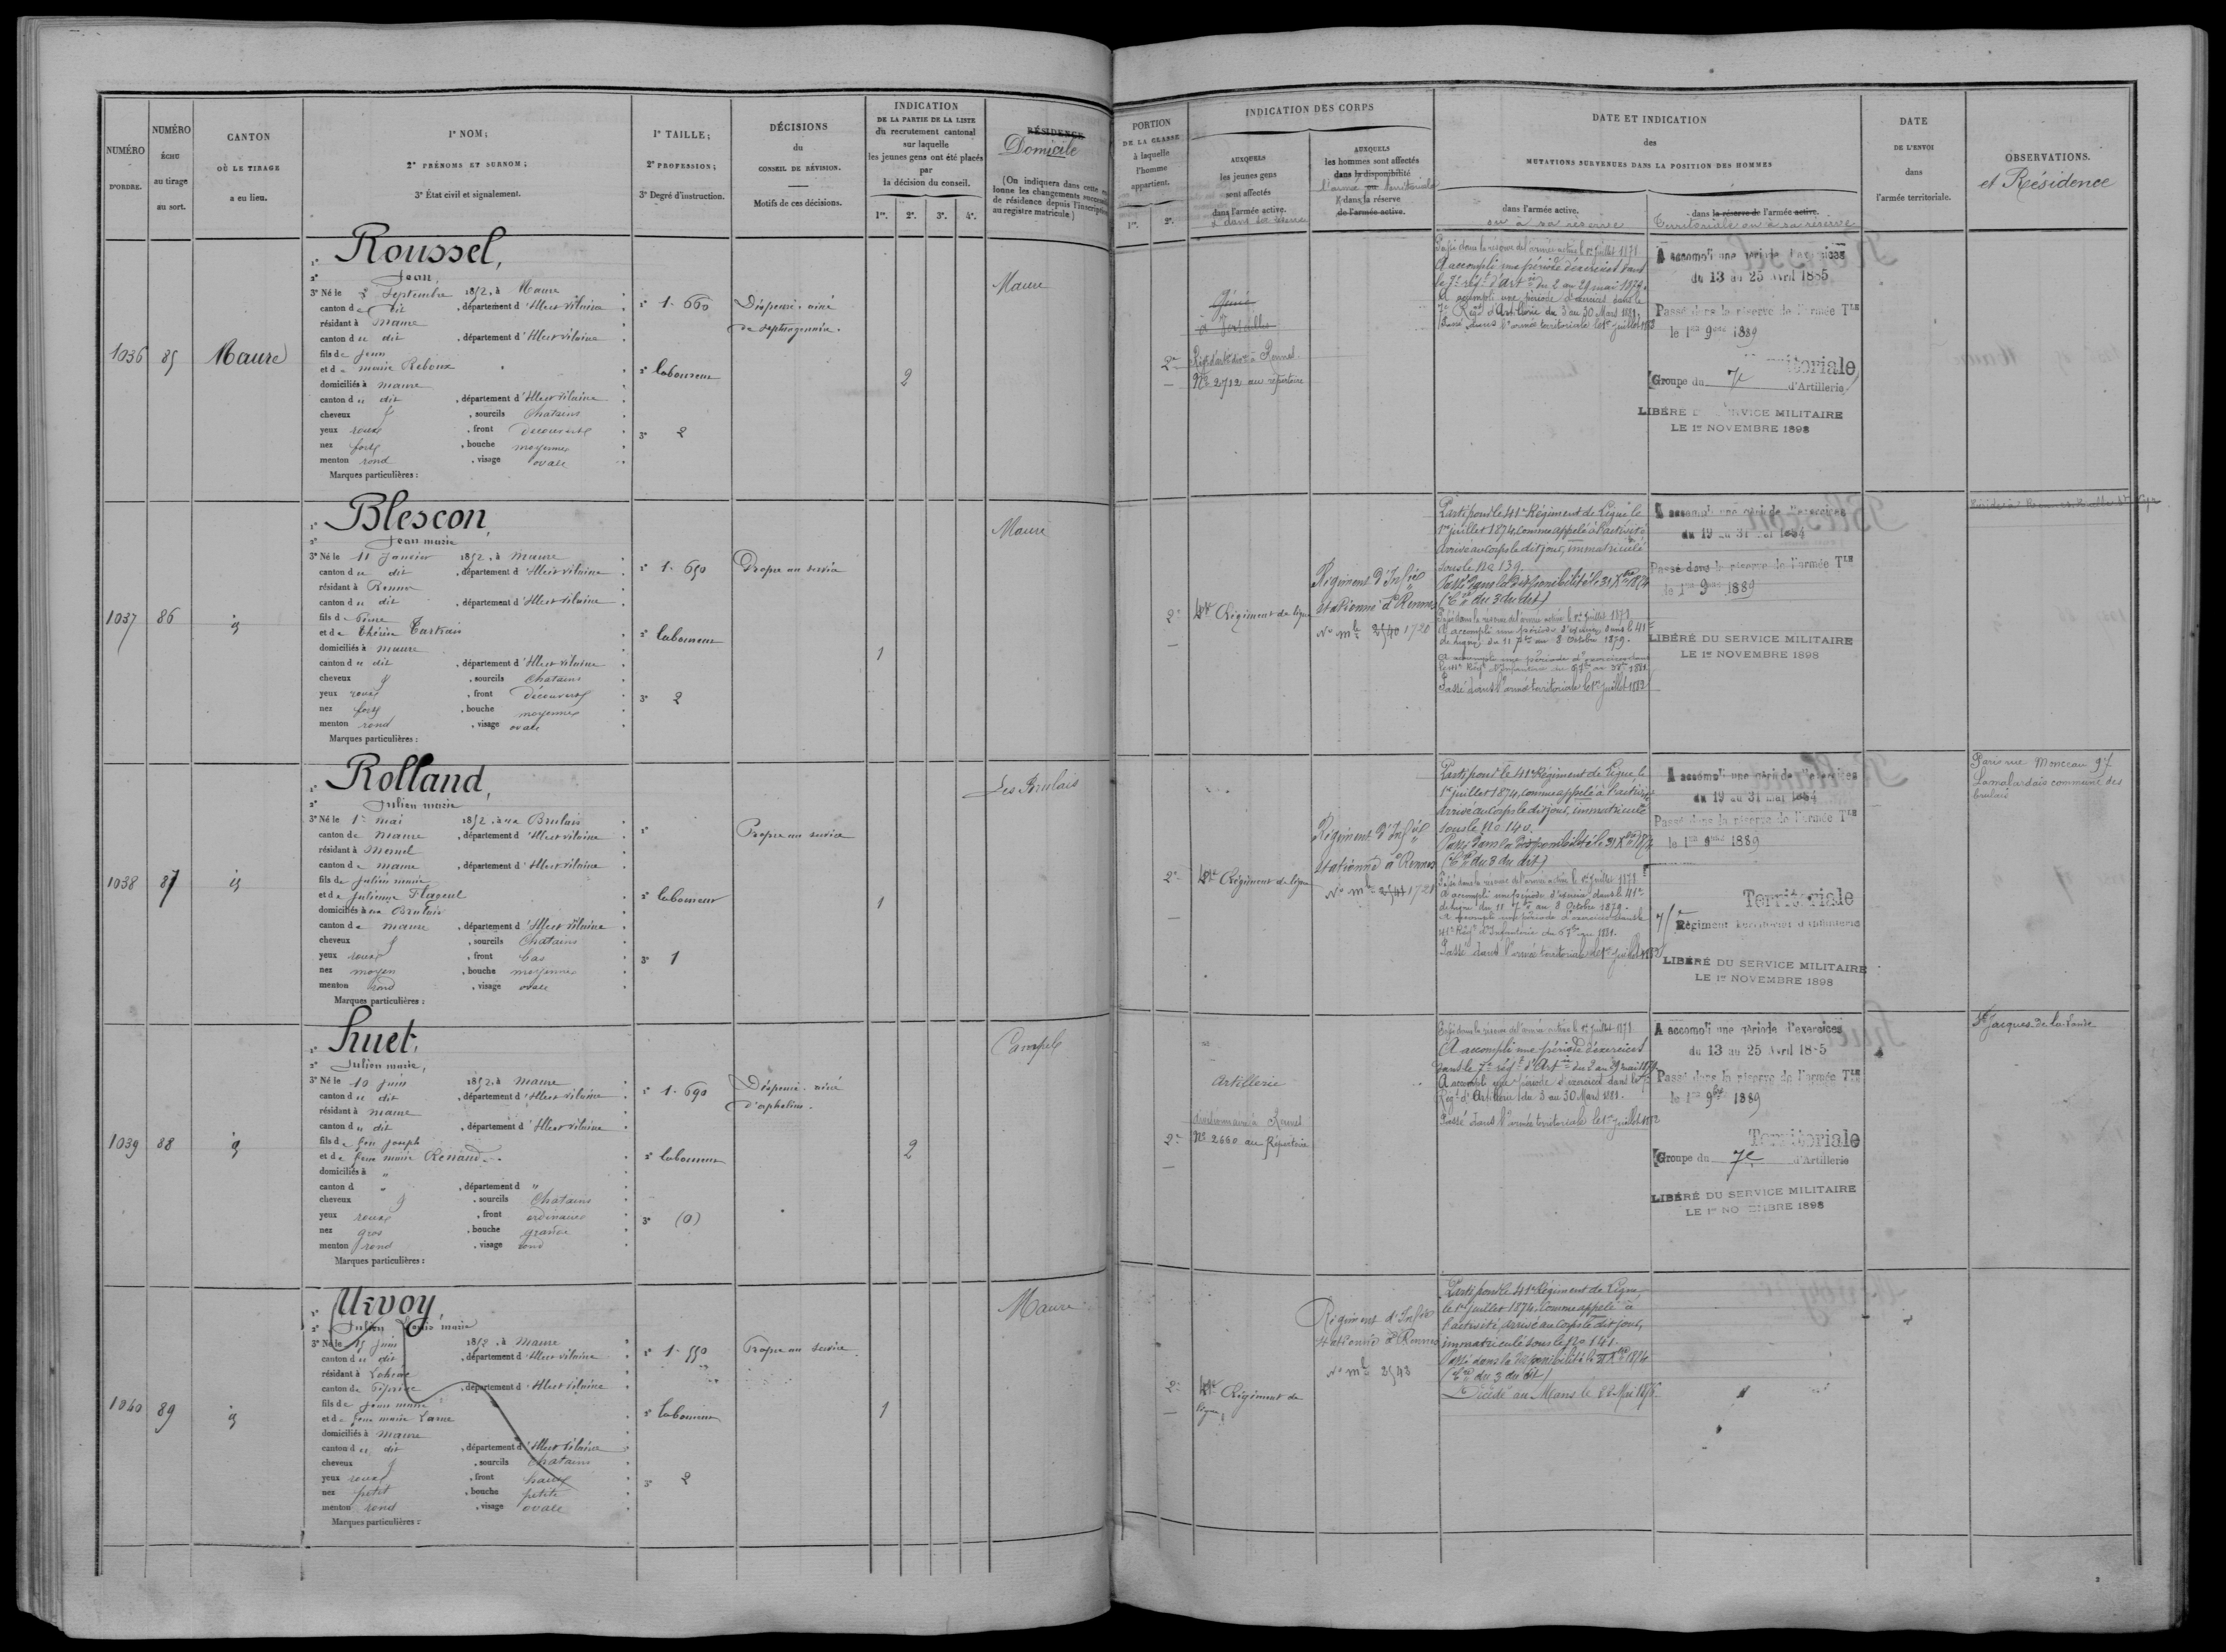 NUMÉRO
D'ORDRE.
NUMÉRO
ÉCHU
au tirage
au sort.
CANTON
OÙ LE TIRAGE
a eu lieu.
1° NOM;
2° PRÉNOMS ET SURNOM;
3° État civil et signalement.
1° TAILLE;
2° PROFESSION;
3° Degré d'instruction.
DÉCISIONS
du
CONSEIL DE RÉVISION.
Motifs de ces décisions.
INDICATION
DE LA PARTIE DE LA LISTE
du recrutement cantonal
sur laquelle
les jeunes gens ont été placés
par
la décision du conseil.
1re. 2e. 3e. 4e.
RÉSIDENCE
Domicile
(On indiquera dans cette
lonne les changements
de résidence depuis l'inscription
au registre matricule)
PORTION
DE LA CLASSE
à laquelle
l'homme
appartient.
1re. 2e.
INDICATION DES CORPS
AUXQUELS
les jeunes gens
sont affectés
dans l'armée active.
& dans sa réserve
AUXQUELS
les hommes sont affectés
dans la disponibilité
l'armée territoriale
& dans la réserve
de l'armée active.
DATE ET INDICATION
des
MUTATIONS SURVENUES DANS LA POSITION DES HOMMES
dans l'armée active.
ou à sa réserve
dans la réserve de l'armée active.
Territoriale ou à sa réserve
DATE
DE L'ENVOI
dans
l'armée territoriale.
OBSERVATIONS.
et Résidence
1036 85 Maure
1° Roussel,
2° Jean,
3° Né le 2 Septembre 1852, à Maure
canton de dit, département d'Ille et Vilaine
résidant à Maure
canton du dit, département d'Ille et Vilaine
fils de Jean
et de marie Reboux
domiciliés à maure
canton du dit, département d'Ille et Vilaine
cheveux, sourcils Chatains
yeux roux, front découvert
nez fort, bouche moyenne
menton rond, visage ovale
Marques particulières :
1° 1. 660
2° laboureur
3° 2
Dispensé. ainé
de septuagénaire.
2
Maure
2e
Génie
à Versailles
Rennes
No 2712 au répertoire
Passé dans la réserve de l'armée active le 1er juillet 1878
A accompli une période d'exercices dans
le 7e régt d'Artie du 2 au 29 mai 1879.
A accompli une période d'exercices dans le
7e Régt d'Artillerie du 3 au 30 Mars 1881.
Passé dans l'armée territoriale le 1er juillet 1883
A accompli une période d'exercices
du 13 au 25 Avril 1885
Passé dans la réserve de l'armée Tle
le 1er 9bre 1889
Territoriale
Groupe du 7e d'Artillerie
LIBÉRÉ DU SERVICE MILITAIRE
LE 1er NOVEMBRE 1898
1037 86 id
1° Blescon,
2° Jean marie
3° Né le 11 Janvier 1852, à maure
canton du dit, département d'Ille et Vilaine
résidant à Rennes
canton du dit, département d'Ille et Vilaine
fils de Pierre
et de Thérèse Tartrais
domiciliés à maure
canton du dit, département d'Ille et Vilaine
cheveux, sourcils Chatains
yeux roux, front découvert
nez fort, bouche moyenne
menton rond, visage ovale
Marques particulières :
1° 1. 650
2° laboureur
3° 2
Propre au service
1
Maure
2e
41e Régiment de ligne
Régiment d'Infie
stationné à Rennes
No mle 2540 1720
Parti pour le 41e Régiment de Ligne le
1er juillet 1874, comme appelé à l'activité
arrivé au corps le dit jour, immatriculé
sous le No 139.
Passé dans la disponibilité le 31 Xbre 1874
(Cre du 3 du dit)
Passé dans la réserve de l'armée active le 1er Juillet 1879
A accompli une période d'exercices dans le 41e
de ligne, du 11 7bre au 8 Octobre 1879.
Passé dans l'armée territoriale le 1er juillet 1883
A accompli une période d'exercices
du 19 au 31 mai 1884
Passé dans la réserve de l'armée Tle
le 1er 9bre 1889
LIBÉRÉ DU SERVICE MILITAIRE
LE 1er NOVEMBRE 1898
1038 87 id
1° Rolland,
2° Julien marie
3° Né le 1er mai 1852, aux Brulais
canton de Maure, département d'Ille et Vilaine
résidant à Mernel
canton de maure, département d'Ille et Vilaine
fils de Julien marie
et de Julienne Flageul
domiciliés aux Brulais
canton de maure, département d'Ille et Vilaine
cheveux, sourcils Chatains
yeux roux, front bas
nez moyen, bouche moyenne
menton rond, visage ovale
Marques particulières :
1°
2° laboureur
3° 1
Propre au service
1
Les Brulais
2e
41e Régiment de ligne
Régiment d'Infie
stationné à Rennes
No mle 2541 1721
Parti pour le 41e Régiment de Ligne le
1er juillet 1874, comme appelé à l'activité
arrivé au corps le dit jour, immatriculé
sous le No 140.
Passé dans la disponibilité le 31 Xbre 1874
(Cre du 3 du dit)
Passé dans la réserve de l'armée active le 1er Juillet 1878
A accompli une période d'exercices dans le 41e
de ligne du 11 7bre au 8 Octobre 1879.
Passé dans l'armée territoriale le 1er juillet 1883
A accompli une période d'exercices
du 19 au 31 mai 1884
Passé dans la réserve de l'armée Tle
le 1er 9bre 1889
Territoriale
Régiment territorial d'infanterie
LIBÉRÉ DU SERVICE MILITAIRE
LE 1er NOVEMBRE 1898
Paris rue Monceau 97
Lamalardais commune des
brulais
1039 88 id
1° huet,
2° Julien marie,
3° Né le 10 juin 1852, à Maure
canton du dit, département d'Ille et Vilaine
résidant à Maure
canton du dit, département d'Ille et Vilaine
fils de feu Joseph
et de feue marie Renaud
domiciliés à "
canton d ", département d "
cheveux, sourcils Chatains
yeux roux, front ordinaire
nez gros, bouche grande
menton rond, visage rond
Marques particulières :
1° 1. 690
2° laboureur
3° (0)
Dispensé. ainé
d'orphelins.
2
Campel
2e
Artillerie
divisionnaire à Rennes
No 2660 au Répertoire
Passé dans la réserve de l'armée active le 1er Juillet 1878
A accompli une période d'exercices
dans le 7e régt d'Artie du 2 au 29 mai 1879
A accompli une période d'exercices dans le 7e
Régt d'Artillerie du 3 au 30 Mars 1881.
Passé dans l'armée territoriale le 1er juillet 1883
A accompli une période d'exercices
du 13 au 25 Avril 1885
Passé dans la réserve de l'armée Tle
le 1er 9bre 1889
Territoriale
Groupe du 7e d'Artillerie
LIBÉRÉ DU SERVICE MILITAIRE
LE 1er NOVEMBRE 1898
St Jacques de la Lande
1040 89 id
1° Urvoy,
2° Julien Louis marie
3° Né le 15 juin 1852, à Maure
canton du dit, département d'Ille et Vilaine
résidant à Lohéac
canton de Pipriac, département d'Ille et Vilaine
fils de
et de feue marie
domiciliés à Maure
canton du dit, département d'Ille et Vilaine
cheveux, sourcils Chatains
yeux roux, front haut
nez petit, bouche petite
menton rond, visage ovale
Marques particulières :
1° 1. 550
2° laboureur
3° 2
Propre au service
1
Maure
2e
41e Régiment de
ligne
Régiment d'Infie
stationné à Rennes
No mle 2543
Parti pour le 41e Régiment de Ligne,
le 1er juillet 1874, comme appelé à
l'activité, arrivé au corps le dit jour,
immatriculé sous le No 141.
Passé dans la disponibilité le 31 Xbre 1874
(Cre du 3 du dit)
Décédé au Mans le 22 Mai